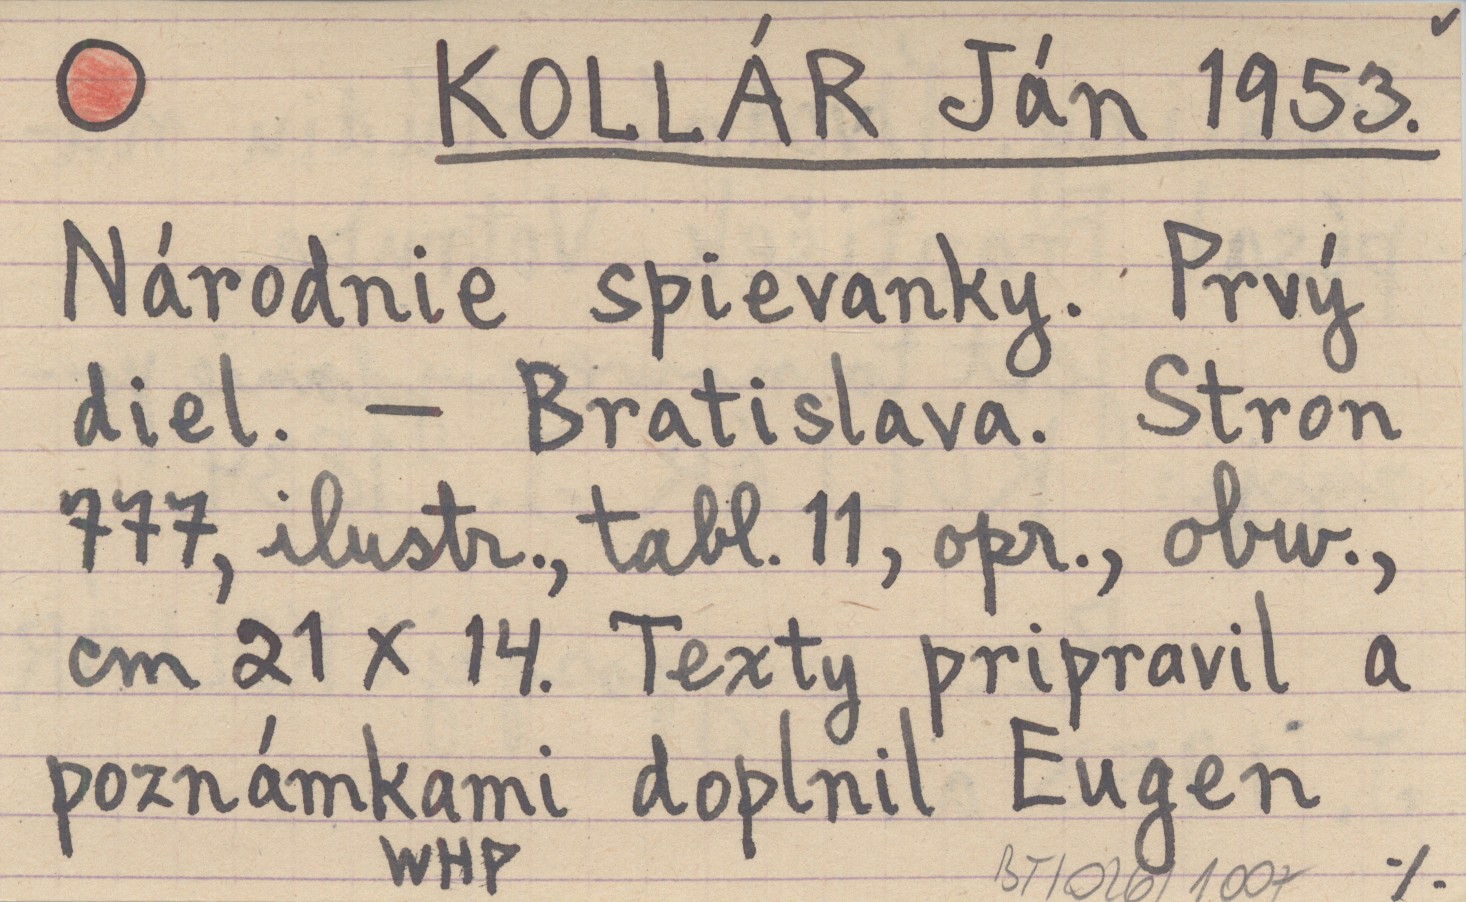 KOLLÁR Ján 1953.
Národnie spievanky. Prvý
diel. — Bratislava. Stron
777, ilustr., tabl. 11, opr., obw.,
cm 21 x 14. Texty pripravil a
poznámkami doplnil Eugen
WHP
BT/026/1007 ·/.